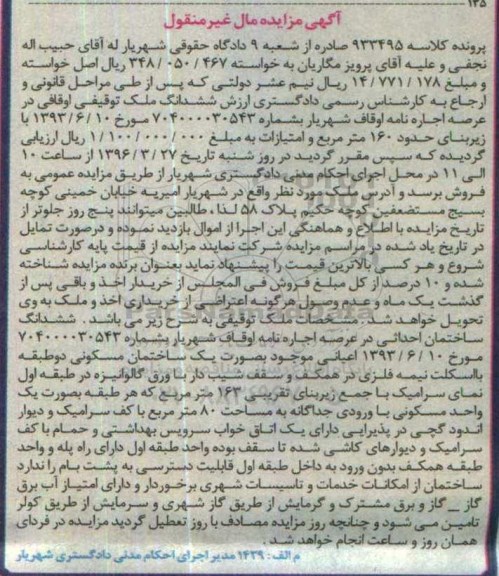 ۱۳۵
آگهی مزایده مال غیر منقول
پرونده کلاسه ۹۳۳۴۹۵ صادره از شعبه ۹ دادگاه حقوقی شهریار له آقای حبیب اله
نجفی و علیه آقای پرویز مگاریان به خواسته ۴۶۷ / ۰۵۰ / ۳۴۸ ریال اصل خواسته
و مبلغ ۱۷۸ / ۷۷۱ / ۱۴ ریال نیم عشر دولتی که پس از طی مراحل قانونی و
ارجاع به کارشناس رسمی دادگستری ارزش ششدانگ ملک توقیفی اوقافی در
عرصه اجاره نامه اوقاف شهریار بشماره ۷۰۴۰۰۰۰۳۰۵۴۳ مورخ ۱۰ / ۶ / ۱۳۹۳ با
زیربنای حدود ۱۶۰ متر مربع و امتیازات به مبلغ ۰۰۰ / ۰۰۰ / ۱۰۰ / ۱ ریال ارزیابی
گردیده که سپس مقرر گردید در روز شنبه تاریخ ۲۷ / ۳ / ۱۳۹۶ از ساعت ۱۰
الی ۱۱ در محل اجرای احکام مدنی دادگستری شهریار از طریق مزایده عمومی به
فروش برسد و آدرس ملک مورد نظر واقع در شهریار امیریه خیابان خمینی کوچه
بسیج مستضعفین کوچه حکیم پلاک ۵۸ لذا، طالبین میتوانند پنج روز جلوتر از
تاریخ مزایده با اطلاع و هماهنگی این اجرا از اموال بازدید نموده و درصورت تمایل
در تاریخ یاد شده در مراسم مزایده شرکت نمایند مزایده از قیمت پایه کارشناسی
شروع و هر کسی بالاترین قیمت را پیشنهاد نماید بعنوان برنده مزایده شناخته
شده و ۱۰ درصد از کل مبلغ فروش فی المجلس از خریدار اخذ و باقی پس از
گذشت یک ماه و عدم وصول هرگونه اعتراضی از خریداری اخذ و ملک به وی
تحویل خواهد شد. مشخصات ملک توقیفی به شرح زیر می باشد. ششدانگ
ساختمان احداثی در عرصه اجاره نامه اوقاف شهریار بشماره ۷۰۴۰۰۰۰۳۰۵۴۳
مورخ ۱۰ / ۶ / ۱۳۹۳ اعیانی موجود بصورت یک ساختمان مسکونی دوطبقه
بااسکلت نیمه فلزی در همکف و سقف شیب دار با ورق گالوانیزه در طبقه اول
نمای سرامیک با جمع زیربنای تقریبی ۱۶۳ متر مربع که هر طبقه بصورت یک
واحد مسکونی با ورودی جداگانه به مساحت ۸۰ متر مربع با کف سرامیک و دیوار
اندود گچی در پذیرایی دارای یک اتاق خواب سرویس بهداشتی و حمام با کف
سرامیک و دیوارهای کاشی شده تا سقف بوده واحد طبقه اول دارای راه پله و واحد
طبقه همکف بدون ورود به داخل طبقه اول قابلیت دسترسی به پشت بام را ندارد
ساختمان از امکانات خدمات و تاسیسات شهری برخوردار و دارای امتیاز آب برق
گاز _ گاز و برق مشترک و گرمایش از طریق گاز شهری و سرمایش از طریق کولر
تامین می شود و چنانچه روز مزایده مصادف با روز تعطیل گردید مزایده در فردای
همان روز و ساعت انجام خواهد شد.
م الف: ۱۴۳۹ مدیر اجرای احکام مدنی دادگستری شهریار